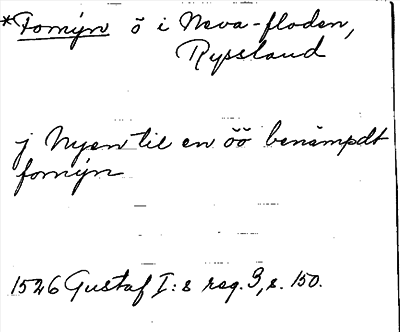 *Fomÿn ö i Neva-floden,
Ryssland
j Nyen til en öö benämpdt
fomÿn
1526 Gustaf I:s reg. 3, s. 150.